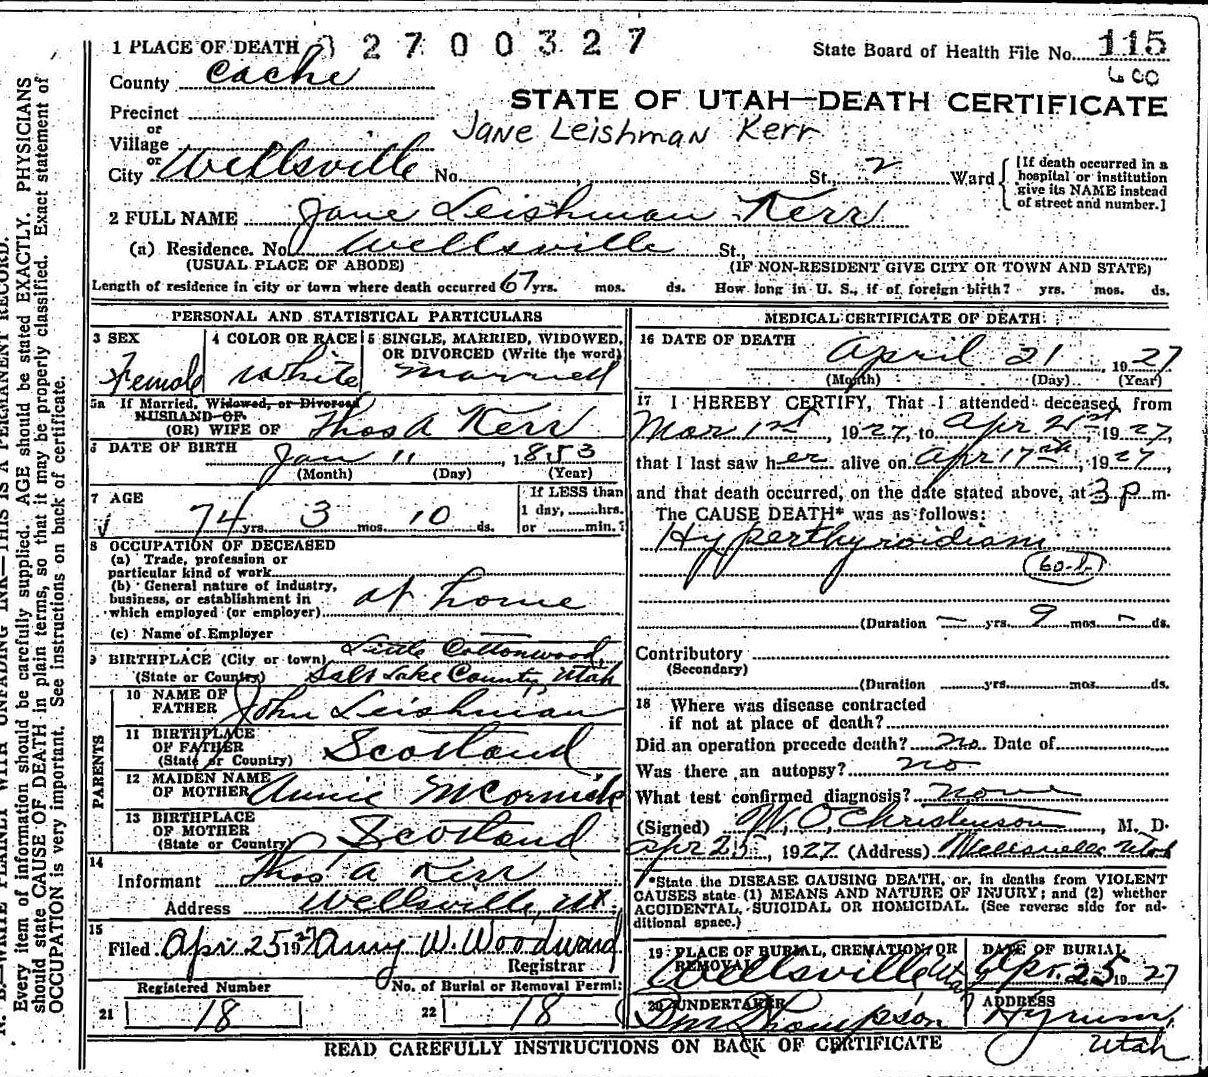 1 PLACE OF DEATH 02700327
State Board of Health File No. 115
County Cache
600
STATE OF UTAH—DEATH CERTIFICATE
Precinct
Jane Leishman Kerr
or
Village
or
City Wellsville No. St., 2 Ward
[If death occurred in a
hospital or institution
give its NAME instead
of street and number.]
2 FULL NAME Jane Leishman Kerr
(a) Residence. No. Wellsville St.,
(USUAL PLACE OF ABODE) (IF NON-RESIDENT GIVE CITY OR TOWN AND STATE)
Length of residence in city or town where death occurred 67 yrs. mos. ds. How long in U. S., if of foreign birth? yrs. mos. ds.
PERSONAL AND STATISTICAL PARTICULARS
3 SEX
Female
4 COLOR OR RACE
White
5 SINGLE, MARRIED, WIDOWED,
OR DIVORCED (Write the word)
Married
5a If Married, Widowed, or Divorced
HUSBAND OF
(OR) WIFE OF Thos A Kerr
6 DATE OF BIRTH Jan 11, 1853
(Month) (Day) (Year)
7 AGE
74 yrs. 3 mos. 10 ds.
If LESS than
1 day, hrs.
or min.?
8 OCCUPATION OF DECEASED
(a) Trade, profession or
particular kind of work
(b) General nature of industry,
business, or establishment in
which employed (or employer) at home
(c) Name of Employer
9 BIRTHPLACE (City or town) Little Cottonwood,
(State or Country) Salt Lake County, Utah
PARENTS
10 NAME OF
FATHER John Leishman
11 BIRTHPLACE
OF FATHER
(State or Country) Scotland
12 MAIDEN NAME
OF MOTHER Annie McCormick
13 BIRTHPLACE
OF MOTHER
(State or Country) Scotland
14
Informant Thos A Kerr
Address Wellsville, Ut.
15
Filed Apr 25 1927 Amy W. Woodward
Registrar
Registered Number
21 18
No. of Burial or Removal Permit
22 18
MEDICAL CERTIFICATE OF DEATH
16 DATE OF DEATH
April 21, 1927
(Month) (Day) (Year)
17 I HEREBY CERTIFY, That I attended deceased from
Mar 1st, 1927, to Apr 21st, 1927,
that I last saw her alive on Apr 17th, 1927,
and that death occurred, on the date stated above, at 3 p m.
The CAUSE DEATH* was as follows:
Hyperthyroidism
(Duration — yrs. 9 mos. — ds.
Contributory
(Secondary)
(Duration yrs. mos. ds.
18 Where was disease contracted
if not at place of death?
Did an operation precede death? no Date of
Was there an autopsy? no
What test confirmed diagnosis? none
(Signed) W. O. Christenson, M. D.
Apr 25, 1927 (Address) Wellsville Utah
*State the DISEASE CAUSING DEATH, or, in deaths from VIOLENT
CAUSES state (1) MEANS AND NATURE OF INJURY; and (2) whether
ACCIDENTAL, SUICIDAL OR HOMICIDAL. (See reverse side for ad-
ditional space.)
19 PLACE OF BURIAL, CREMATION, OR
REMOVAL
Wellsville Utah
DATE OF BURIAL
Apr. 25 1927
20 UNDERTAKER
Thompson
ADDRESS
Hyrum,
Utah
READ CAREFULLY INSTRUCTIONS ON BACK OF CERTIFICATE
N. B.—WRITE PLAINLY WITH UNFADING INK—THIS IS A PERMANENT RECORD.
Every item of information should be carefully supplied. AGE should be stated EXACTLY. PHYSICIANS
should state CAUSE OF DEATH in plain terms, so that it may be properly classified. Exact statement of
OCCUPATION is very important. See instructions on back of certificate.